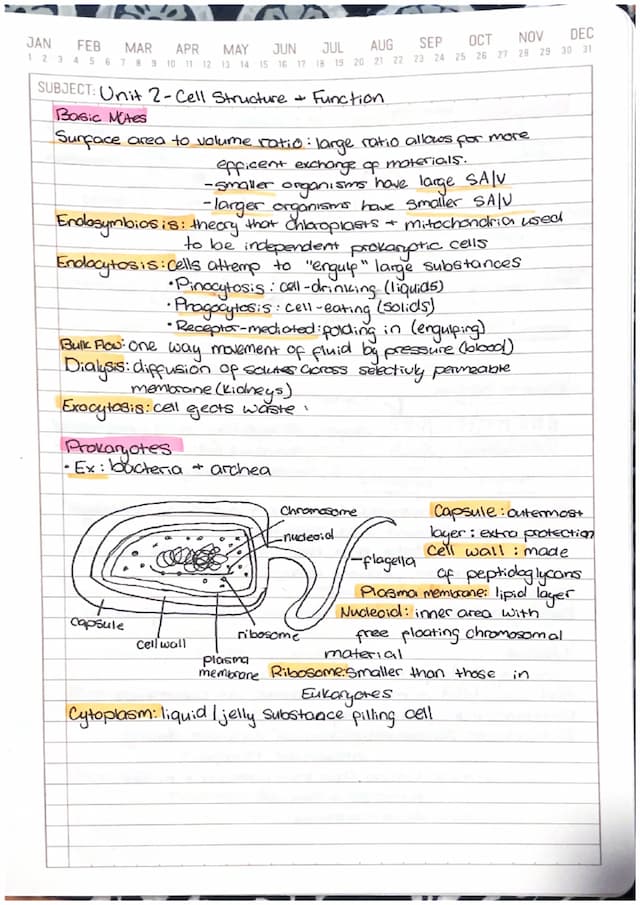 JAN FEB MAR APR MAY JUN JUL AUG SEP OCT NOV DEC
1 2 3 4 5 6 7 8 9 10 11 12 13 14 15 16 17 18 19 20 21 22 23 24 25 26 27 28 29 30 31
SUBJECT: Unit 2 - Cell Structure + Function
Basic Notes
Surface area to volume ratio: large ratio allows for more
efficent exchange of materials.
- smaller organisms have large SA/V
- larger organisms have smaller SA/V
Endosymbiosis: theory that chloroplasts + mitochondria used
to be independent prokaryotic cells
Endocytosis: cells attemp to "engulf" large substances
• Pinocytosis: cell-drinking (liquids)
• Phagocytosis: cell-eating (solids)
• Receptor-mediated: folding in (engulfing)
Bulk Flow: one way movement of fluid by pressure (blood)
Dialysis: diffusion of solutes across selectivly permeable
membrane (kidneys)
Exocytosis: cell ejects waste
Prokaryotes
• Ex: bacteria + archea
chromosome
nucleoid
flagella
capsule
cell wall
plasma
membrane
ribosome
Capsule: outermost
layer: extra protection
Cell wall: made
of peptidoglycans
Plasma membrane: lipid layer
Nucleoid: inner area with
free floating chromosomal
material
Ribosome: Smaller than those in
Eukaryotes
Cytoplasm: liquid / jelly substance filling cell